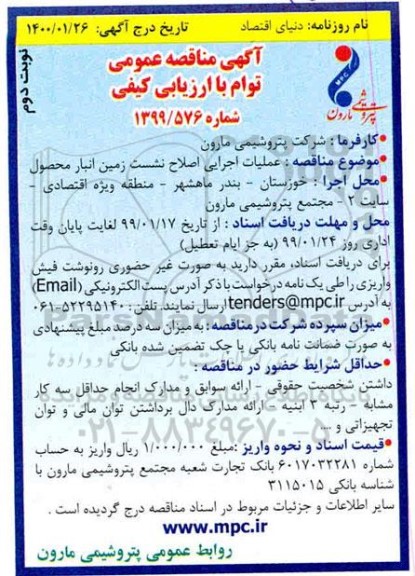 نام روزنامه: دنیای اقتصاد
تاریخ درج آگهی: ۱۴۰۰/۰۱/۲۶
نوبت دوم
آگهی مناقصه عمومی
توام با ارزیابی کیفی
شماره ۱۳۹۹/۵۷۶
MPC
پتروشیمی مارون
●کارفرما : شرکت پتروشیمی مارون
●موضوع مناقصه : عملیات اجرایی اصلاح نشست زمین انبار محصول
●محل اجرا : خوزستان - بندر ماهشهر - منطقه ویژه اقتصادی -
سایت ۲ - مجتمع پتروشیمی مارون
محل و مهلت دریافت اسناد : از تاریخ ۹۹/۰۱/۱۷ لغایت پایان وقت
اداری روز ۹۹/۰۱/۲۴ (به جز ایام تعطیل)
برای دریافت اسناد، مقرر دارید به صورت غیر حضوری رونوشت فیش
واریزی را طی یک نامه درخواست با ذکر آدرس پست الکترونیکی (Email)
به آدرس tenders@mpc.ir ارسال نمایند. تلفن: ۵۲۲۹۵۱۴۰-۰۶۱
●میزان سپرده شرکت در مناقصه : به میزان سه درصد مبلغ پیشنهادی
به صورت ضمانت نامه بانکی یا چک تضمین شده بانکی
●حداقل شرایط حضور در مناقصه :
داشتن شخصیت حقوقی - ارائه سوابق و مدارک انجام حداقل سه کار
مشابه - رتبه ۳ ابنیه - ارائه مدارک دال برداشتن توان مالی و توان
تجهیزاتی و ....
●قیمت اسناد و نحوه واریز :مبلغ ۱/۰۰۰/۰۰۰ ریال واریز به حساب
شماره ۶۰۱۷۰۳۲۲۸۱ بانک تجارت شعبه مجتمع پتروشیمی مارون با
شناسه بانکی ۳۱۱۵۰۱۵
سایر اطلاعات و جزئیات مربوط در اسناد مناقصه درج گردیده است .
www.mpc.ir
روابط عمومی پتروشیمی مارون
۰۲۱-۸۸۳۴۹۶۷۰-۵